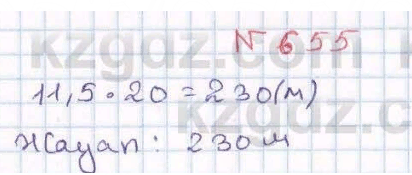 N 655
11,5 • 20 = 230(м)
Жауап: 230 м
kzgdz.com
kzgdz.com